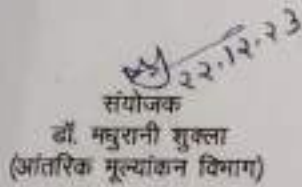 २२.१२.२३
संयोजक
डॉ. मधुरानी शुक्ला
(आंतरिक मूल्यांकन विभाग)